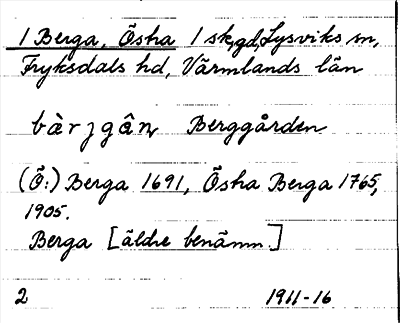 1 Berga, Östra 1 sk,gd, Lysviks sn,
Fryksdals hd, Värmlands län
bàrjgân, Berggården
(Ö:) Berga 1691, Östra Berga 1765,
1905.
Berga [äldre benämn.]
2 1911-16